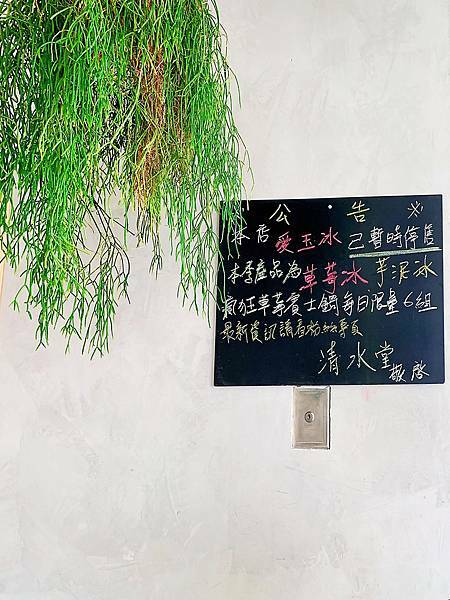 公告
本店愛玉冰已暫時停售
本季產品為草莓冰 芋泥冰
瘋狂草莓賓士鍋每日限量6組
最新資訊請看粉絲專頁
清水堂
敬啓